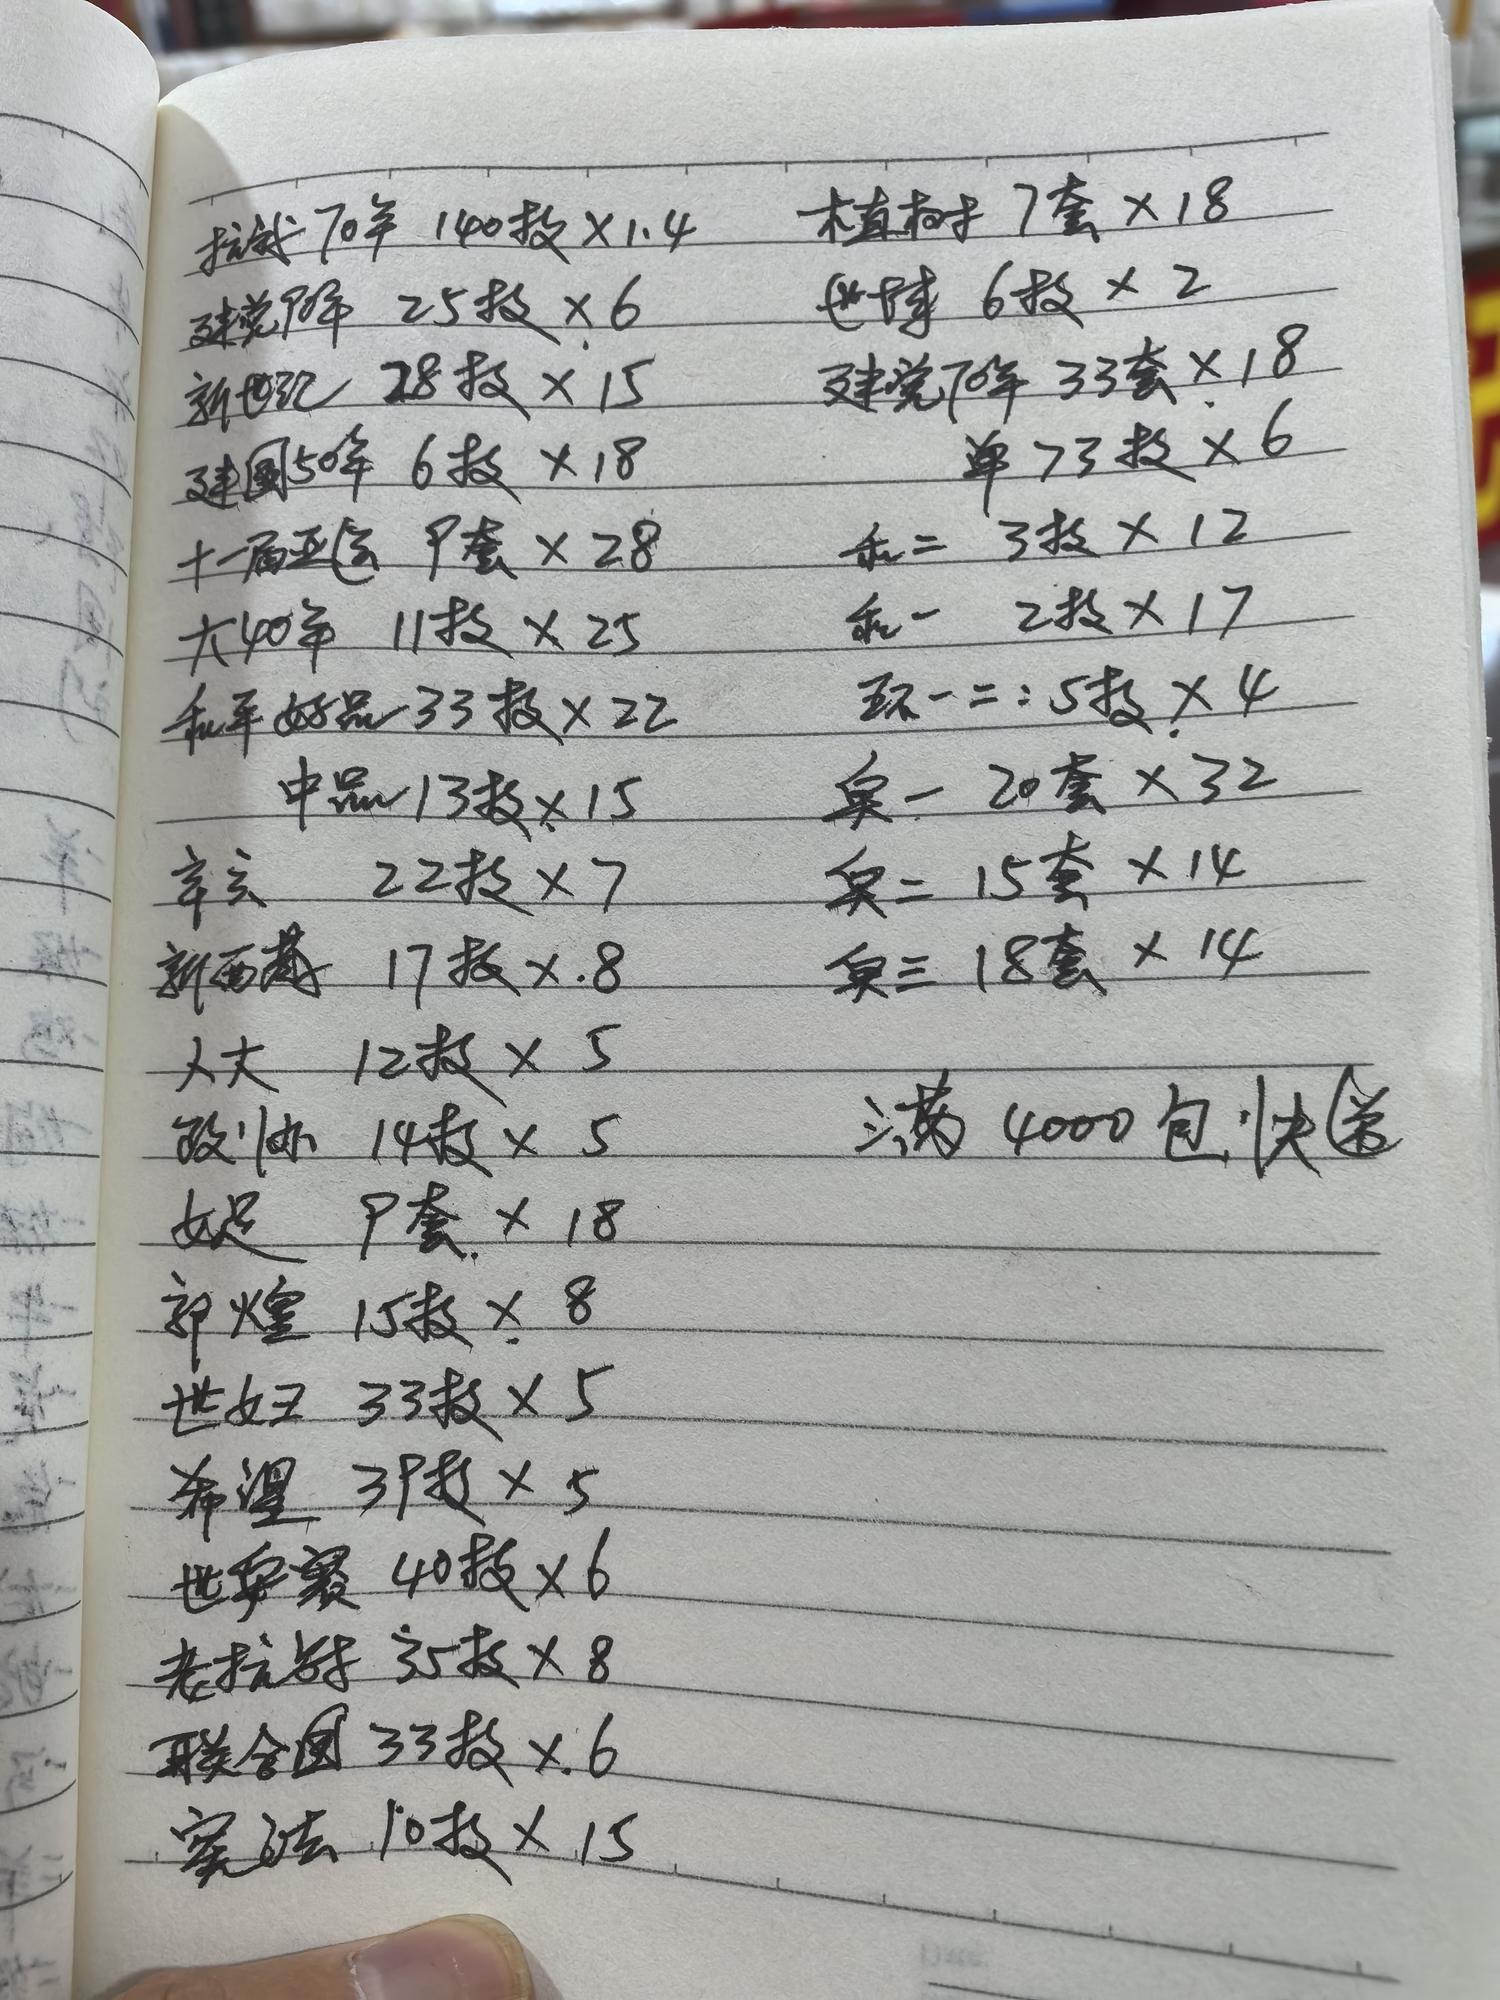 抗战70年 140枚×1.4
建党90年 25枚×6
新世纪 28枚×15
建国50年 6枚×18
十一届亚运 9套×28
大40年 11枚×25
和平好品 33枚×22
中品 13枚×15
辛亥 22枚×7
新西藏 17枚×8
人大 12枚×5
政协 14枚×5
女足 9套×18
郭煌 15枚×8
世妇 33枚×5
希望 39枚×5
世乒赛 40枚×6
老抗战 35枚×8
联合国 33枚×6
宪法 10枚×15
植树 7套×18
世博 6枚×2
建党70年 33套×18
单 73枚×6
和二 3枚×12
和一 2枚×17
环一二:5枚×4
奥一 20套×32
奥二 15套×14
奥三 18套×14
满4000包快递